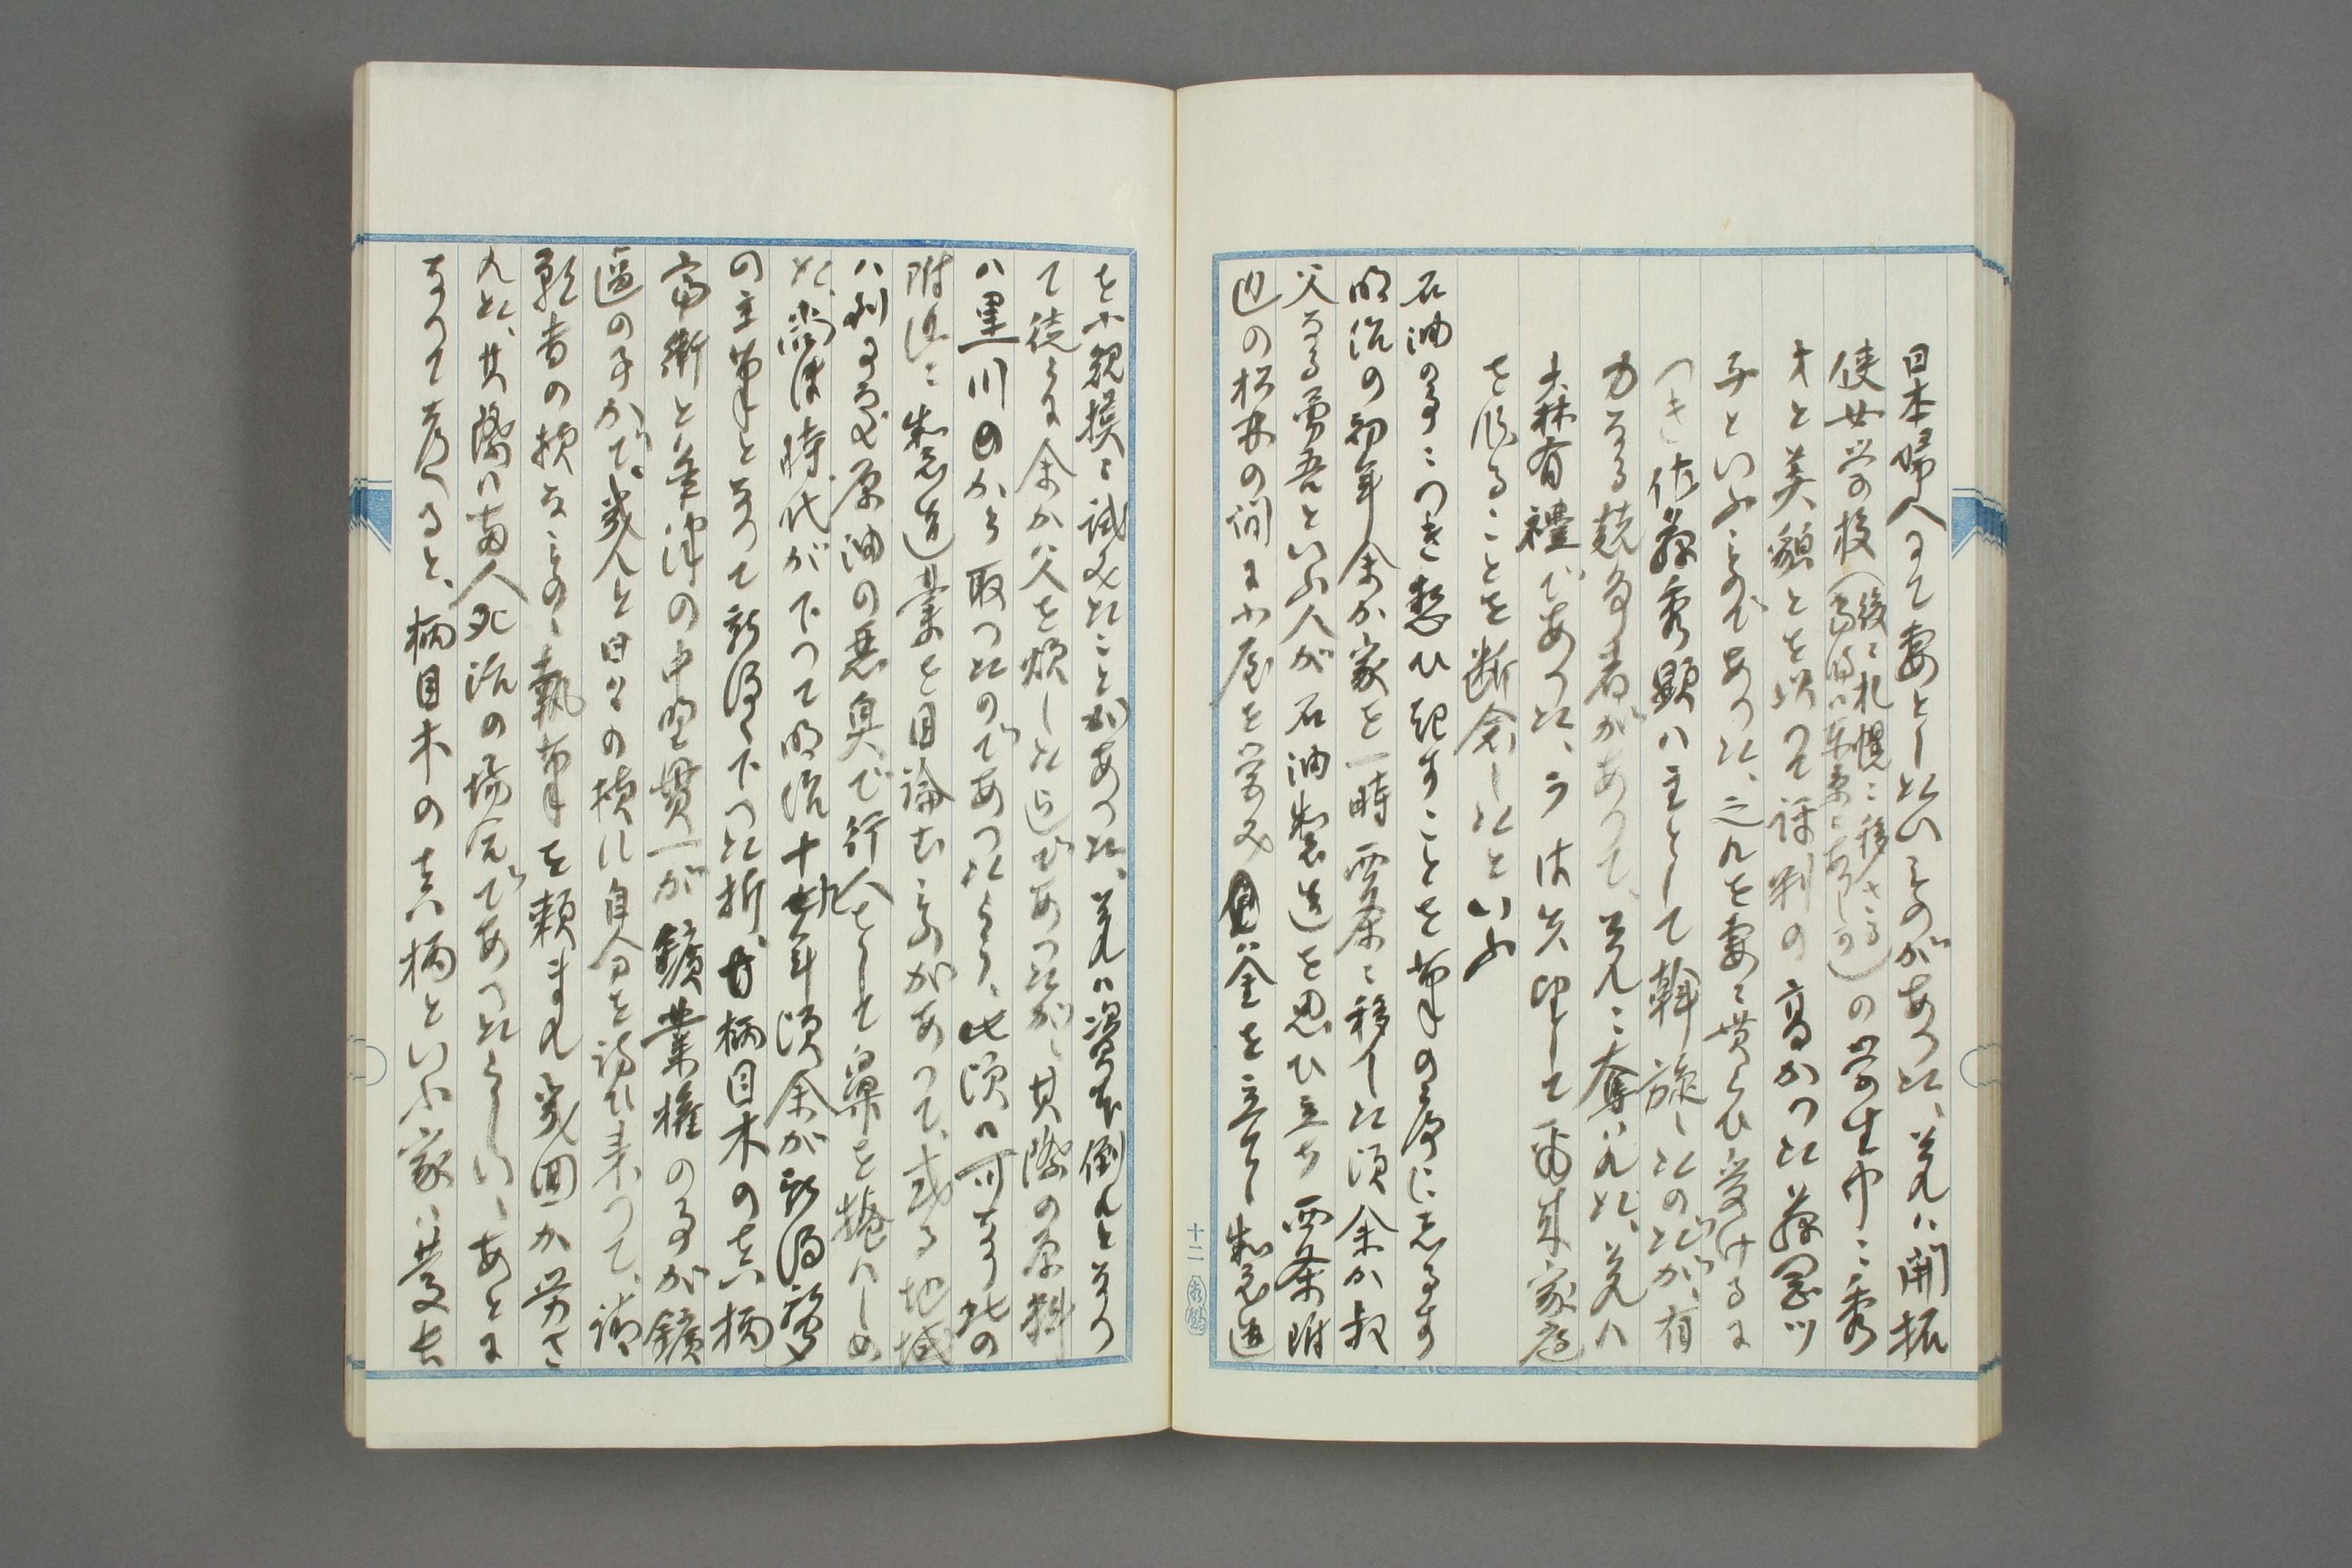 日本婦人にて妻としたいものがあつた、それは開拓
使女学校(後に札幌に移さる当時は東京にありし)の学生中に秀
才と美貌とを以つて評判の高かつた
子といふものであつた、之れを妻に貰らひ受けるに
つき佐藤秀顕は主として斡旋したのだが、有
力なる競争者があつて、それに奪はれた、それは
森有禮であつた、ラは失望して爾来家庭
を作ることを断念したといふ
石油の事につき想ひ起すことを筆の序に志るす
明治の初年余が家を一時栗条に移した頃余が叔
父なる勇吾といふ人が石油製造を思ひ立ち附
近の松林の間に小屋を営み金を立て製造
を小規模に試みたことがあつた、それは資本倒れとなつ
て徒らに余が父を煩したらしかつたが、其際の原料
は黒川のから取つたのであつたらう、此頃は可なり此の
附近に製造業を目論む者があつて、或る地域
は到る處原油の悪臭で行人をして鼻を掩はしめ
た、尚ほ時代が下つて明治十九年頃余が新潟新聞
の主筆となつて新潟へ下つた折、柄目木の真柄
富衛と新津の中野貫一が鑛業権の事が鑛
区の争かで、或人と日々の様に自分を訪ひ来つて、請
願書の様なもの、執筆を頼まれ幾回か労さ
れた、其際は両人死活の場合であつたらしい、あとに
なつて考へると、柄目木の真柄といふ家は
十二